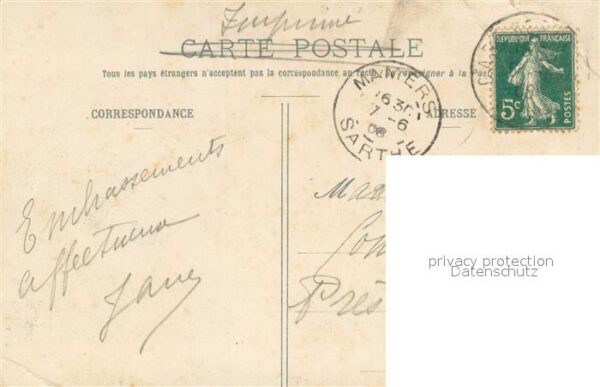 Imprimé
CARTE POSTALE
Tous les pays étrangers n'acceptent pas la correspondance au recto. (se renseigner à la Poste
CORRESPONDANCE
ADRESSE
MAMERS
16 30
7 - 6
08
SARTHE
REPUBLIQUE FRANÇAISE
5c
POSTES
Embrassements
affectueux
Près
privacy protection
Datenschutz